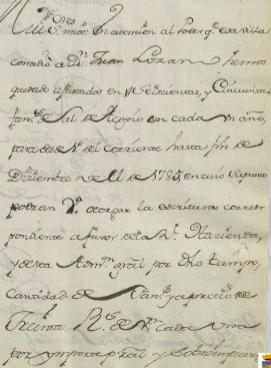 en atencion al Poder q.e esa villa
comedio a D.n Juan Lozan hemos
quedado ajustados en seiscientas, y Cincuenta
fan.s de Sal de Acopio en cada un año,
para desde 1.o del corriente hasta fin de
Diziembre de 1785, en cuio
podran V. otorgar la escritura corres
pondiente a favor de la R.l Hazienda,
y desta Adm.on gral por dho tiempo,
cantidad de fan.s y a precio de
Treinta R.s de V.n cada una
por y sobreimpuestos